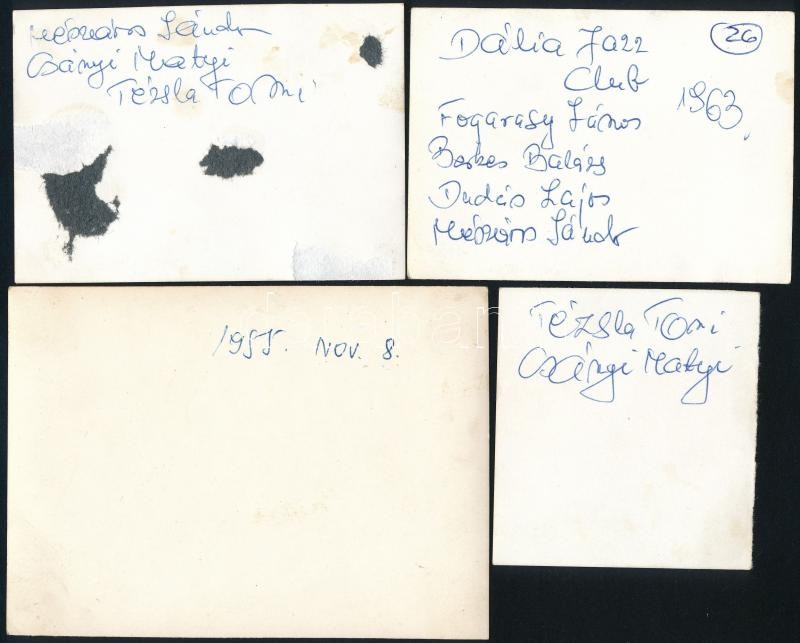 Mészáros Sándor
Csányi Matyi
Tézsla Tomi
Dália Jazz
26
Club
1963.
Fogarasy János
Berkes Balázs
Dudás Lajos
Mészáros Sándor
1955. NOV. 8.
Tézsla Tomi
Csányi Matyi